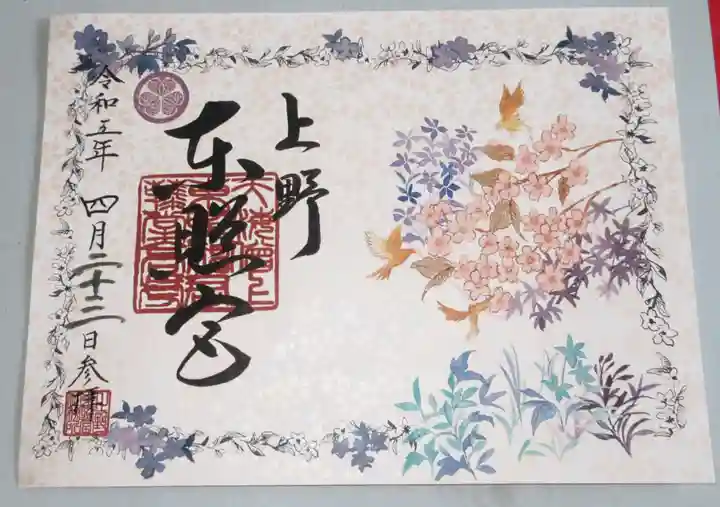 上野
東照宮
令和五年 四月二十二日参拝